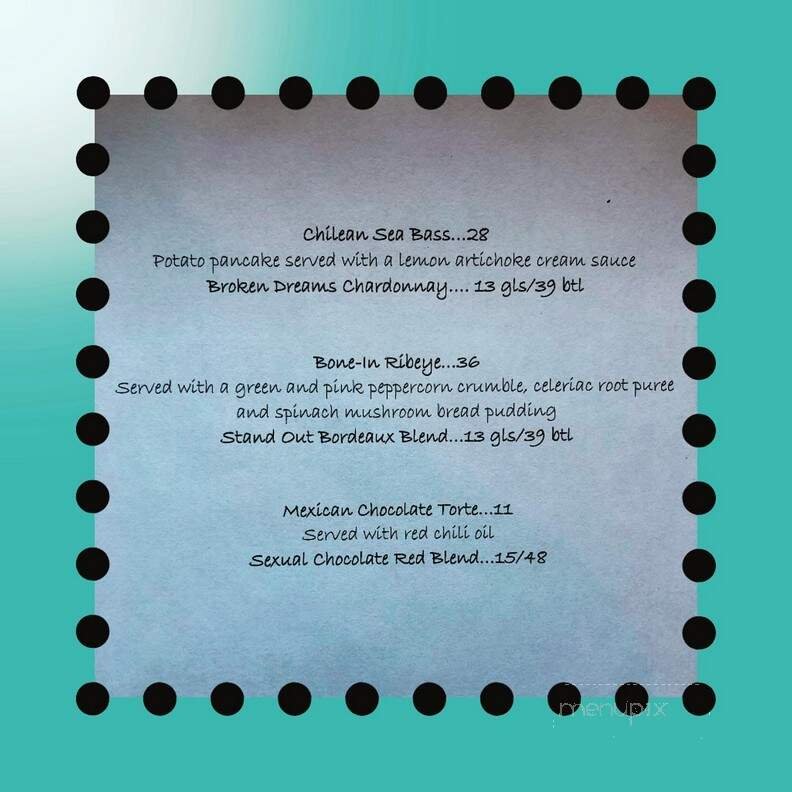 Chilean Sea Bass...28
Potato pancake served with a lemon artichoke cream sauce
Broken Dreams Chardonnay.... 13 gls/39 btl
Bone-In Ribeye...36
Served with a green and pink peppercorn crumble, celeriac root puree
and spinach mushroom bread pudding
Stand Out Bordeaux Blend...13 gls/39 btl
Mexican Chocolate Torte...11
Served with red chili oil
Sexual Chocolate Red Blend...15/48
menupix